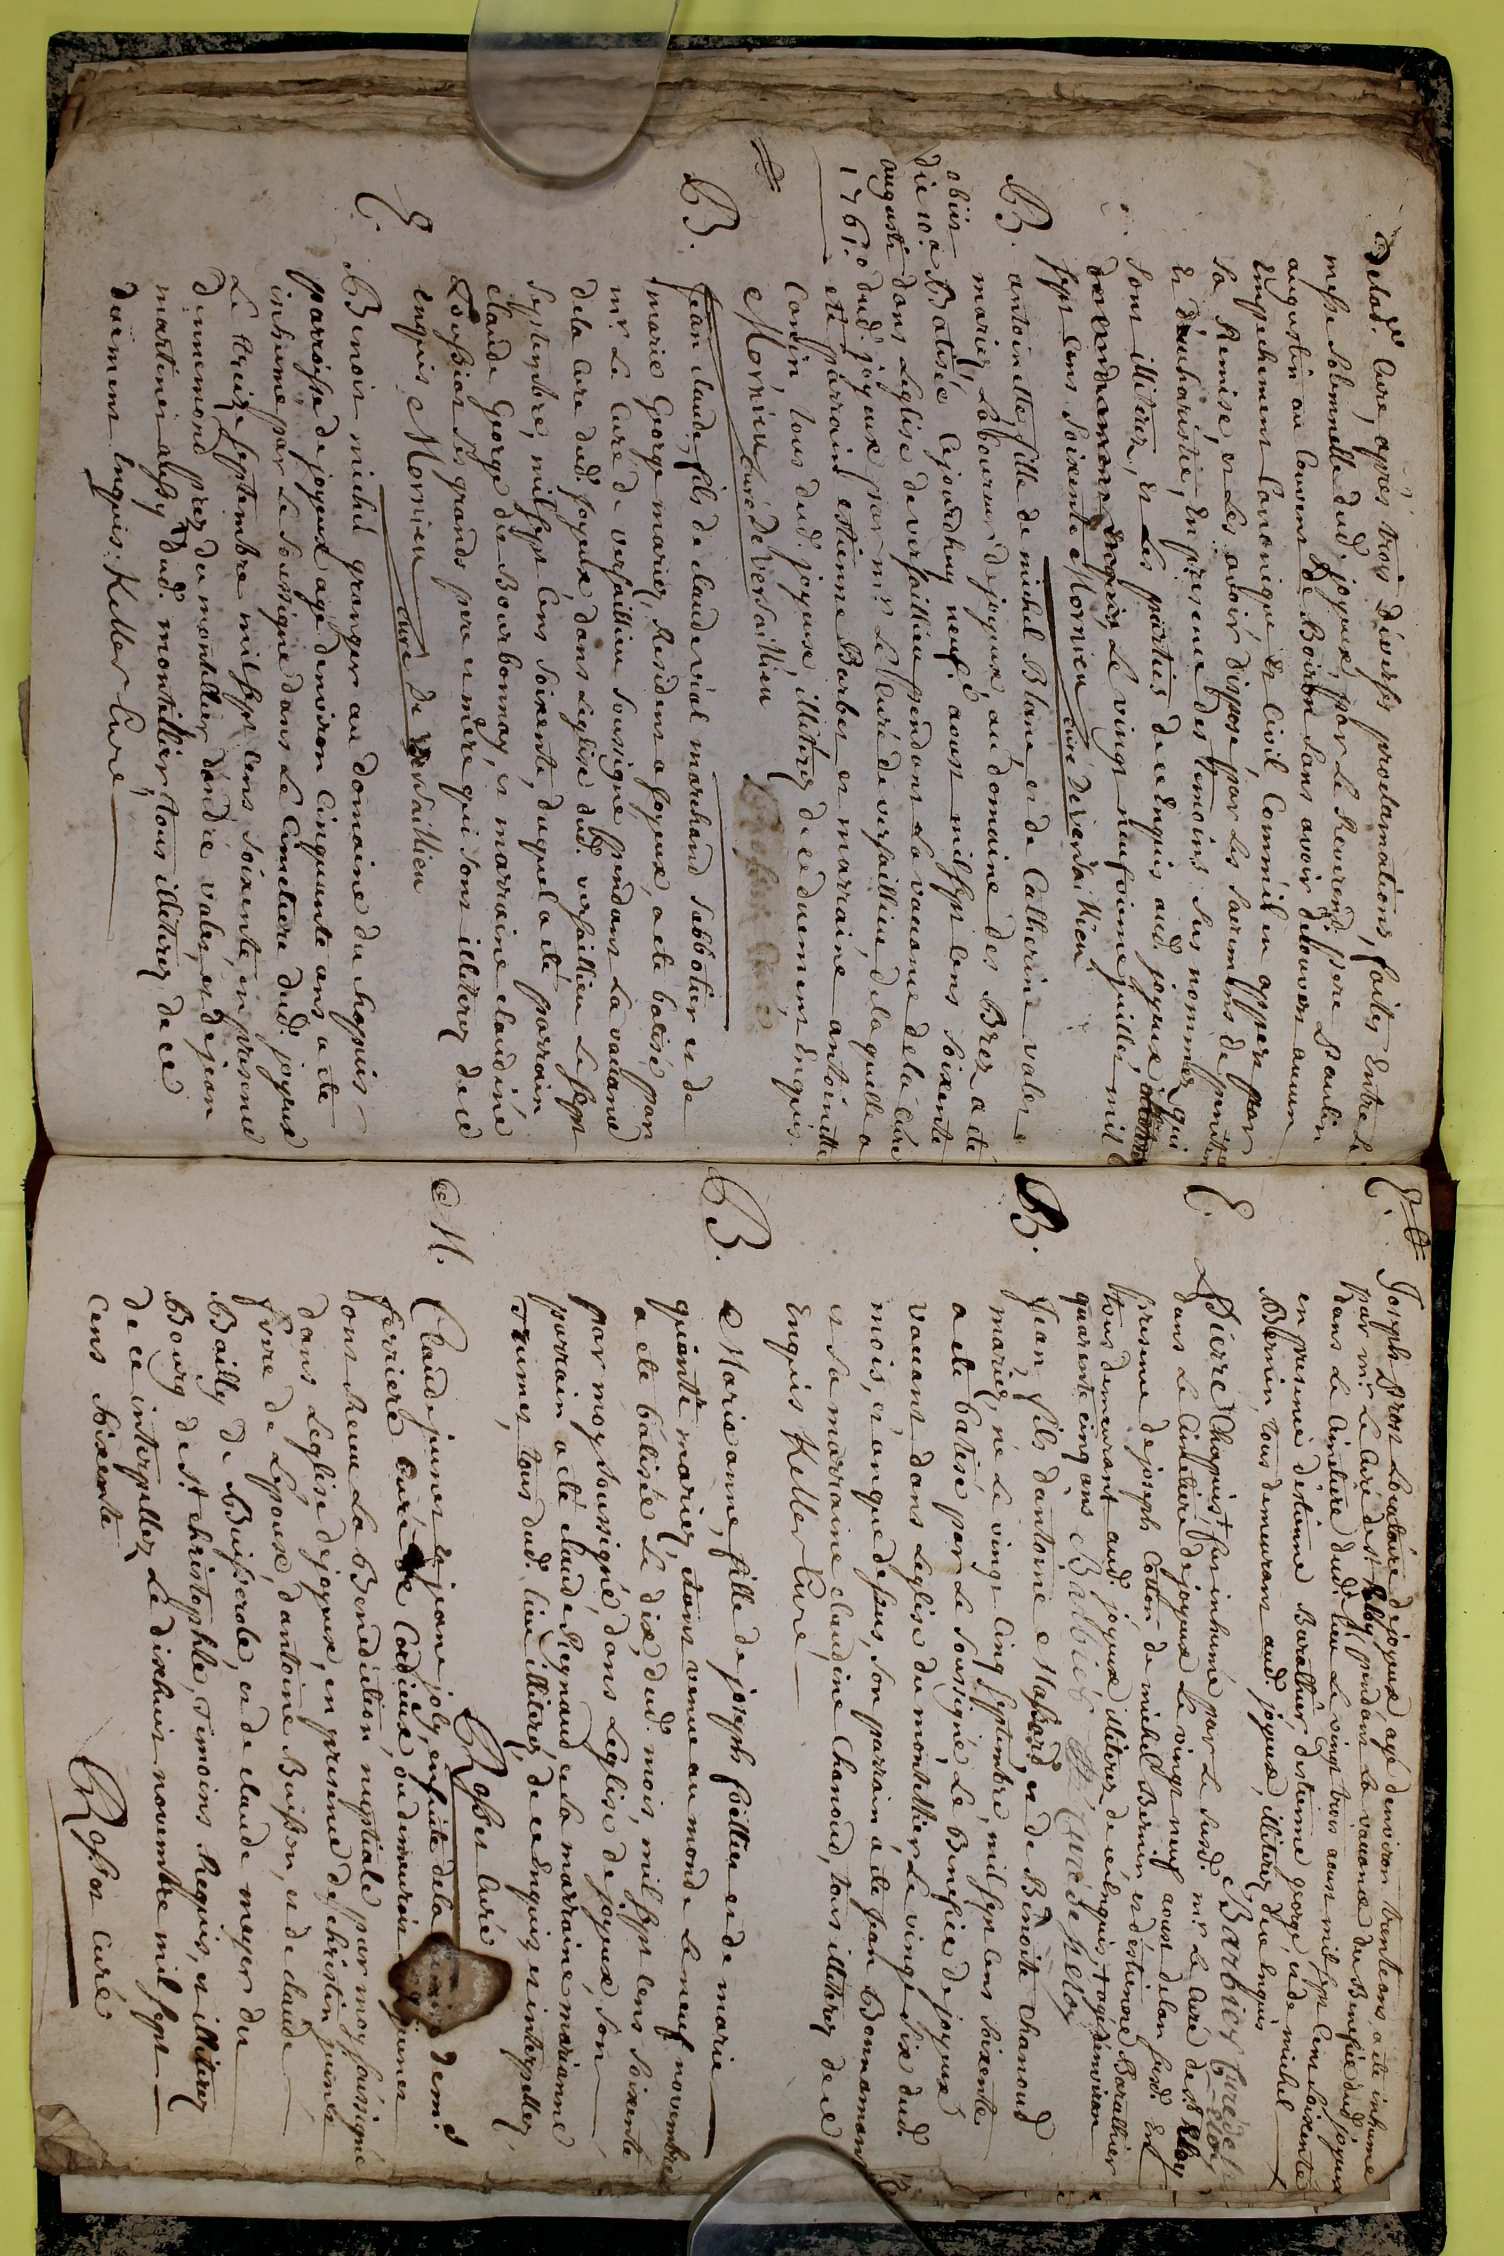 delad. Cure, aprés trois diverses proclamations, faites Entre la
messe solomnelle dud. joyeux, par Le Reverend pere Paulin
augustin au Couvent de Boisson sans avoir decouvert aucun
Empechement Canonique et Civil Commêil en appert par
sa Remise, et Les avoir disposé, par Les sacrements de peniten
et d'eucharistie, En presence des temoins sus nommez qui
sont illiterez, et Les parties de ce Enquis aud. joyeux
Enquis Le vingt neuvieme juillet, mil
sept Cens soixente Mornieu curé de versaillieu
B. antoinette fille de michel Blanc et de Catherine valet
mariez Laboureur de joyeux, au domaine des Brez a eté
obiit
die 10a Batisée Cejourdhuy neuf aoust mil sept Cens soixente
augusti dans Leglise de versaillieu pendant La vacance de la Cure
1761. dud. joyeux par mr. Le Curé de versaillieu de laquelle a
eté parrain estienne Barbet et marraine antoinette
Conin tous dud. joyeux, illiterez de ce duement Enquis.
Mornieu curé de versaillieu
B. jean claude, fils de claude vial marchand sabbotier et de
marie George mariez Resident a joyeux, a eté batisé par
mr. Le Curé de versaillieu soussigné pendant La vacance
dela Cure dud. joyeux dans Leglise dud. versaillieu Le sept
septembre, mil sept Cens soixente, duquel a eté parrain
claude George de Bourbonnay, et marraine claudine
Loussion ses grands pere et mere qui sont illiterez de ce
enquis Mornieu curé de versaillieu
E. Benoit michel granger au domaine du chappuis
parroisse de joyeux agé denviron Cinquante ans a eté
inhumé par Le soussigné dans Le Cimetiere dud. joyeux
Le treize septembre mil sept Cens soixente, en presence
dimmond prez du montellier dandré valet, et de jean
martinet aussy dud. montellier tous illiterez de ce
duement Enquis. Keller Curé
E. Joseph Prost Locataire de joyeux, agé denviron trente ans, a eté inhumé
par mr. Le Curé de st Eloy pendant La vacance du Benefice dud. joyeux
dans Le Cimetiere dud. lieu Le vingt trois aoust mil sept Cens soixente
en presence destienne Barallier, destienne george et de michel
Bernin, tous demeurant aud. joyeux, illiterez de ce enquis
Barbier Curé de
st Eloy
E. Pierre Chapuis fut inhumé par Le susd. mr. Le Curé de st Eloy
dans Le Cimetiere de joyeux Le vingt neuf aoust delan susd. En
presence de joseph Cotton, de michel Bernin et destienne Barallier
tous demeurant aud. joyeux illiterez de ce enquis + agé denviron
quarente cinq ans Barbier Curé de st Eloy
B. Jean fils dantoine Massard, et de Benoite chanoud
mariez, né Le vingt Cinq septembre, mil sept Cens soixente
a eté batisé par Le soussigné, Le Benefice de joyeux
vacant dans Leglise du montellier, Le vingt six dud.
mois, et an que dessus, son parrain a eté jean Bonnamour
et sa marraine claudine chanoud, tous illiterez de ce
Enquis Keller Curé
B. Marie anne, fille de joseph foillieu et de marie
quionte mariez, etant venue au monde Le neuf novembre
a eté batisée Le dix, dud. mois, mil sept Cens soixente
par moy soussigné, dans Leglise de joyeux, son
parrain a eté claude Regnaud et sa marraine marianne
Trumet, tous dud. lieu illiterez, de ce Enquis et interpellez,
Rosset Curé
M. Claude juinet et jeane joly, ensuite de la dem.
ferriere curé de Cordieux, ou demeuroit juinet
ont Receu La Benediction nuptiale par moy soussigné
dans Leglise de joyeux, en presence de christin juinet
frere de Lepoux, dantoine Buisson, et de claude
Bailly de Buisserole, et de claude meyer du
Bourg de st christophle, temoins Requis, et illiterez
de ce interpellez Le dixhuit novembre mil sept
Cens soixente
Rosset Curé